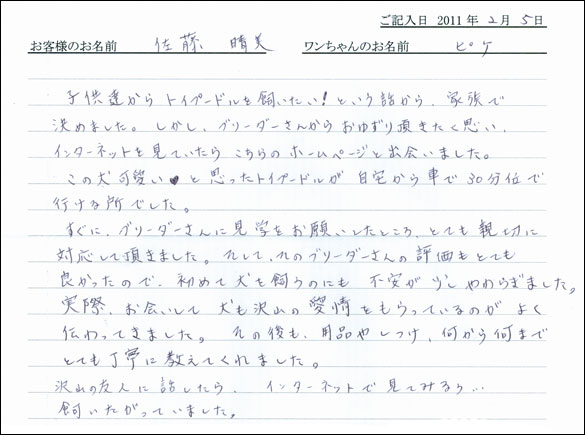 ご記入日 2011年2月5日
お客様のお名前 佐藤 晴美 ワンちゃんのお名前 ピケ
子供達からトイプードルを飼いたい！という話から、家族で
決めました。しかし、ブリーダーさんからおゆずり頂きたく思い、
インターネットを見ていたらこちらのホームページと出会いました。
この犬可愛い♥と思ったトイプードルが自宅から車で30分位で
行ける所でした。
すぐに、ブリーダーさんに見学をお願いしたところ、とても親切に
対応して頂きました。そして、そのブリーダーさんの評価もとても
良かったので、初めて犬を飼うのにも不安が少しやわらぎました。
実際、お会いして犬も沢山の愛情をもらっているのがよく
伝わってきました。その後も、用品やしつけ、何から何まで
とても丁寧に教えてくれました。
沢山の友人に話したら、インターネットで見てみるら…
飼いたがっていました。